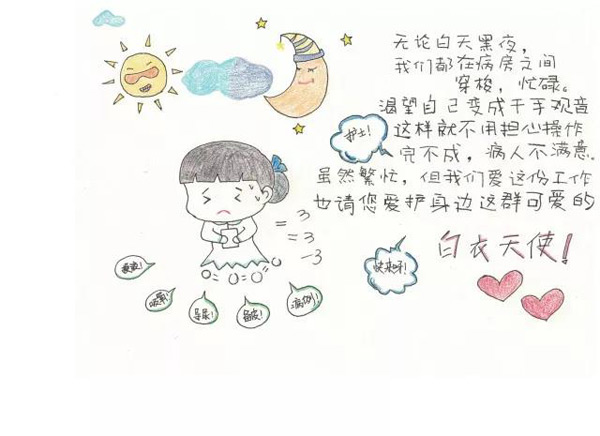 无论白天黑夜，
我们都在病房之间
穿梭，忙碌。
渴望自己变成千手观音
这样就不用担心操作
完不成，病人不满意。
虽然繁忙，但我们爱这份工作
也请您爱护身边这群可爱的
白衣天使！
护士！
=3
=3
-3
快来呀！
吸氧！
导尿！
备皮！
病例！